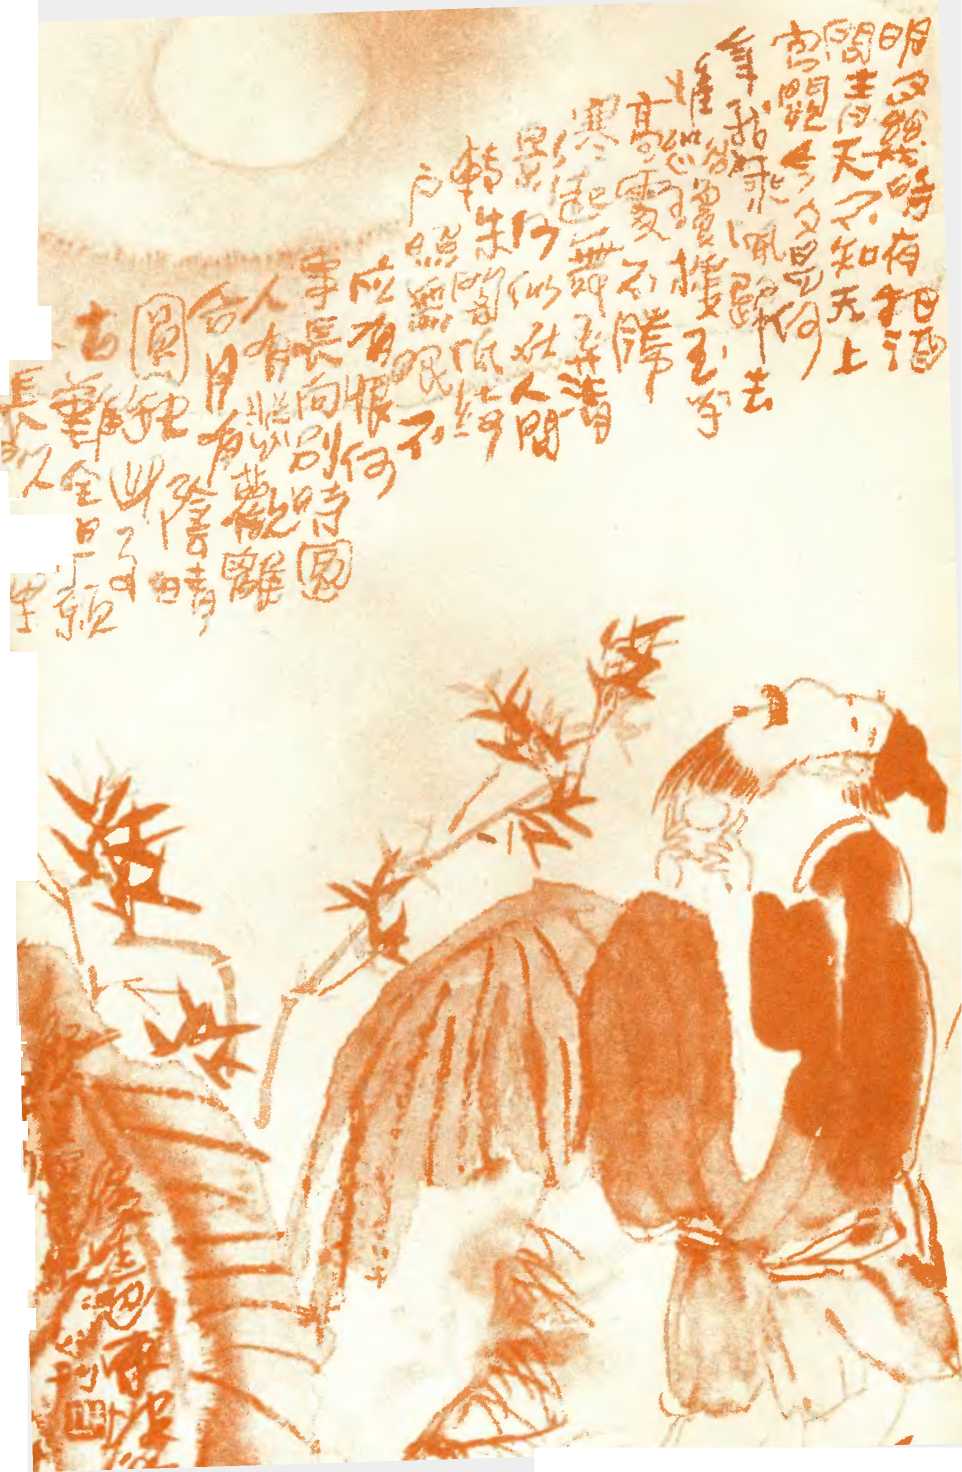 明月幾時有把酒
問青天不知天上
宫闕今夕是何
年我欲乘風歸去
惟恐瓊樓玉宇
高處不勝
寒起舞弄清
影何似在人間
轉朱閣低綺
户照無眠不
應有恨何
事長向别時圓
人有悲歡離
合月有陰晴
圓缺此事
古難全但願
長久里